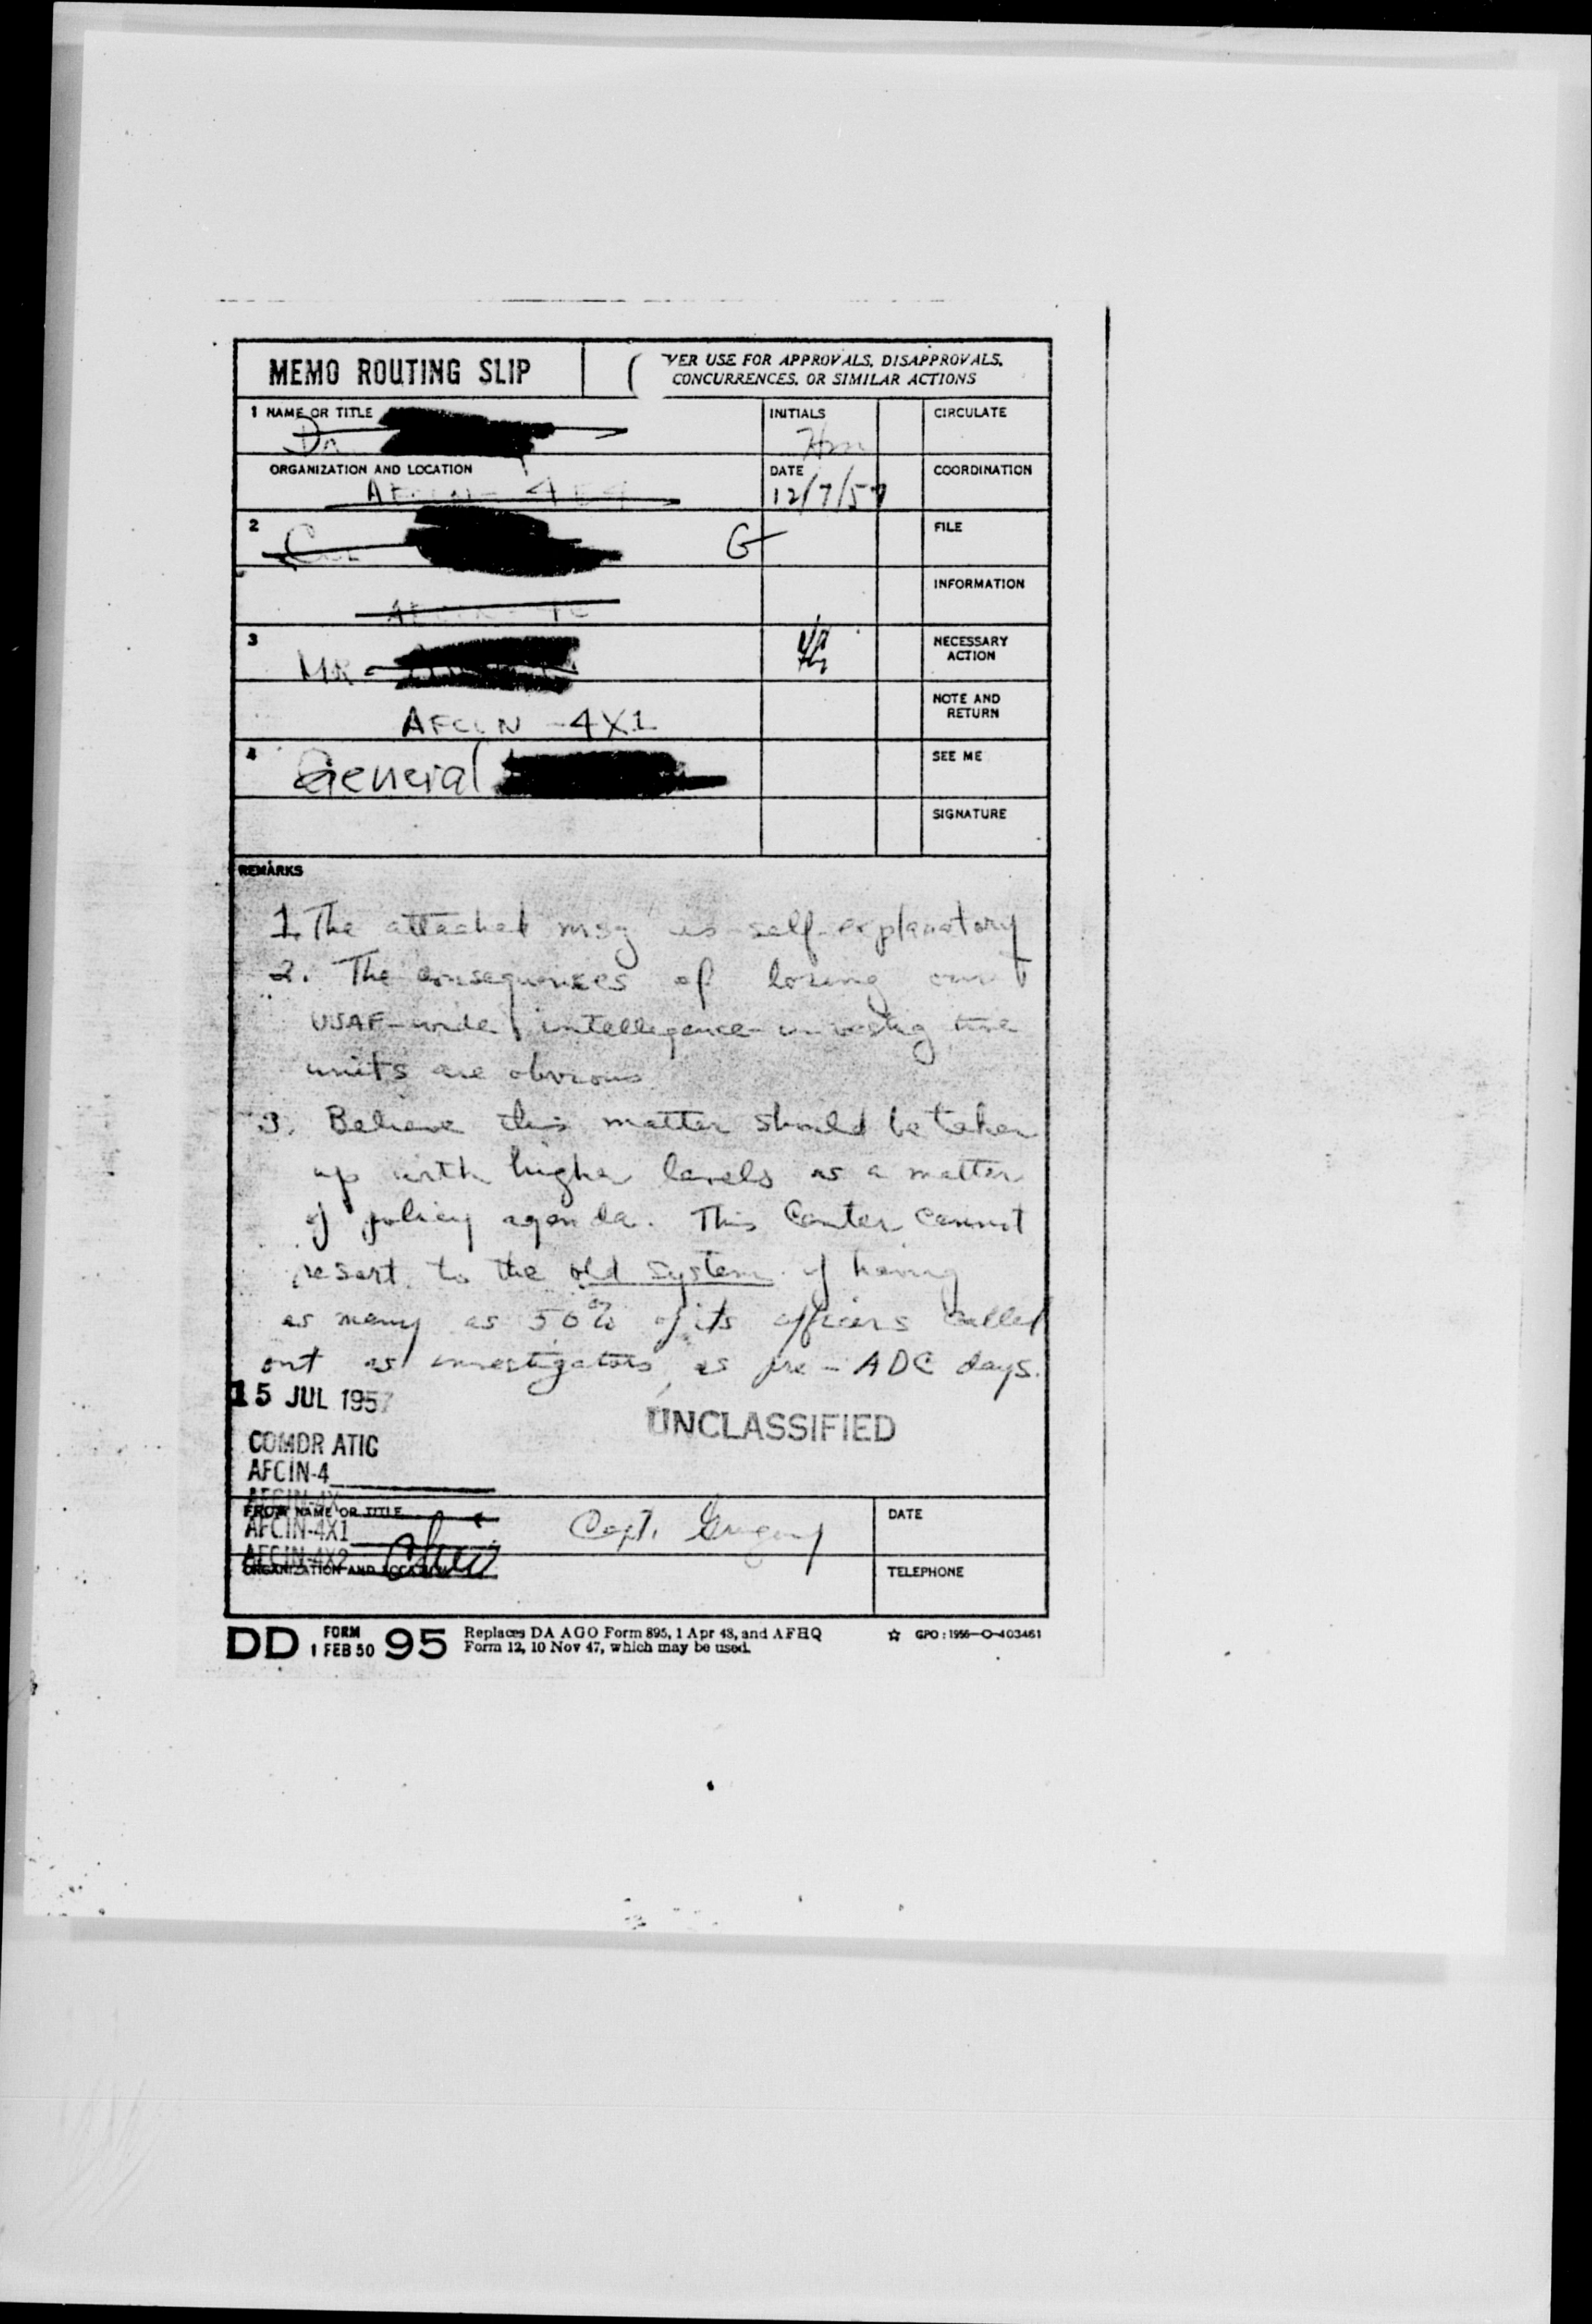 MEMO ROUTING SLIP
VER USE FOR APPROVALS, DISAPPROVALS,
CONCURRENCES, OR SIMILAR ACTIONS
1 NAME OR TITLE
Dr.
INITIALS
CIRCULATE
ORGANIZATION AND LOCATION
DATE
12/7/57
COORDINATION
2
G
FILE
INFORMATION
3
MR
NECESSARY
ACTION
AFCIN-4X1
NOTE AND
RETURN
4
General
SEE ME
SIGNATURE
REMARKS
1. The attached msg is self-explanatory
2. The consequences of losing our
USAF-wide intelligence
units are obvious
3. Believe this matter should be taken
up with higher levels as a matter
of policy agenda. This Center cannot
resort to the old system of having
as many as 50% of its officers called
out as investigators, as pre-ADC days.
15 JUL 1957
UNCLASSIFIED
COMDR ATIC
AFCIN-4
AFCIN-4X
FROM NAME OR TITLE
AFCIN-4X1
Capt. Gregory
DATE
AFCIN-4X2
ORGANIZATION AND LOCATION
TELEPHONE
DD FORM 1 FEB 50 95
Replaces DA AGO Form 895, 1 Apr 48, and AFHQ
Form 12, 10 Nov 47, which may be used.
☆ GPO: 1956—O-403461